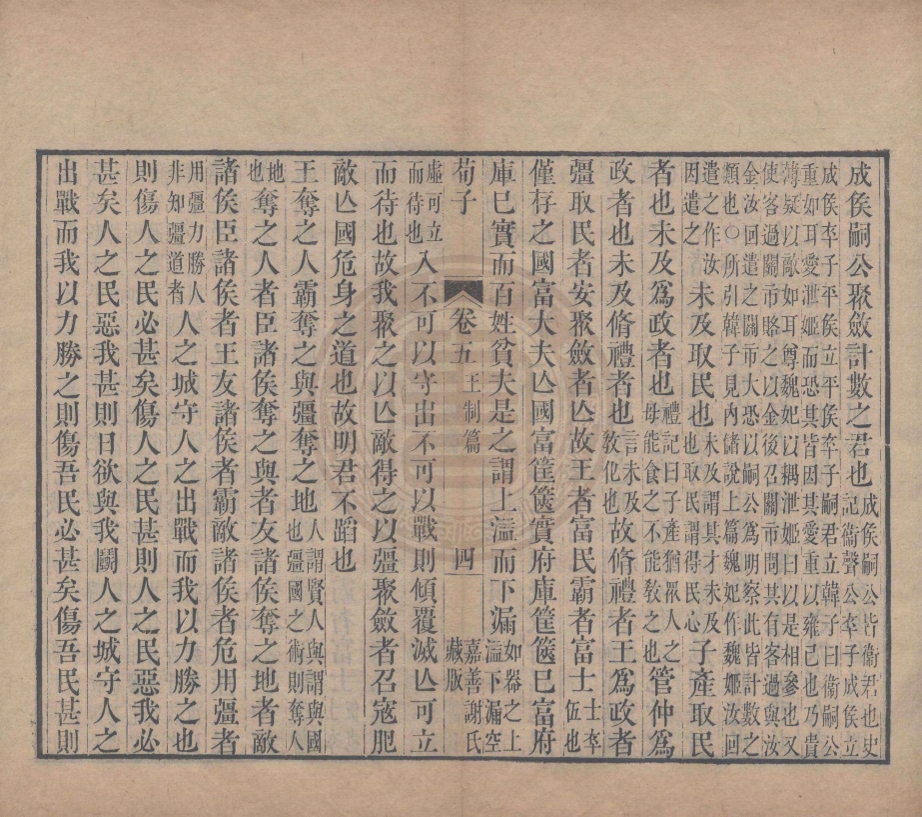 成侯嗣公聚斂計數之君也成侯嗣公皆衛君也史記衛聲公卒子成侯立
成侯卒子平侯立平侯卒子嗣君立韓子曰衛嗣公
重如耳愛泄姬而恐其皆因其愛重以雍己也乃貴
薄疑以敵如耳尊魏妃以耦泄姬曰以是相參也又
使客過關市賂之以金後召關市問其有客過與汝
金汝回遣之關市大恐以嗣公爲明察此皆計數之
類也○所引韓子見內儲說上篇魏妃作魏姬汝回
遣之作汝因遣之未及取民也未及謂其才未及也取民謂得民心子產取民
者也未及爲政者也禮記曰子產猶衆人之母能食之不能敎之也管仲爲
政者也未及脩禮者也言未及敎化也故脩禮者王爲政者
彊取民者安聚斂者亾故王者富民霸者富士士卒伍也
僅存之國富大夫亾國富筐篋實府庫筐篋已富府
庫已實而百姓貧夫是之謂上溢而下漏如器之上溢下漏空
荀子 卷五 王制篇 四 嘉善謝氏藏版
虛可立而待也入不可以守出不可以戰則傾覆滅亾可立
而待也故我聚之以亾敵得之以彊聚斂者召寇肥
敵亾國危身之道也故明君不蹈也
王奪之人霸奪之與彊奪之地人謂賢人與謂與國也彊國之術則奪人
地也奪之人者臣諸侯奪之與者友諸侯奪之地者敵
諸侯臣諸侯者王友諸侯者霸敵諸侯者危用彊者
用彊力勝人非知彊道者人之城守人之出戰而我以力勝之也
則傷人之民必甚矣傷人之民甚則人之民惡我必
甚矣人之民惡我甚則日欲與我鬭人之城守人之
出戰而我以力勝之則傷吾民必甚矣傷吾民甚則